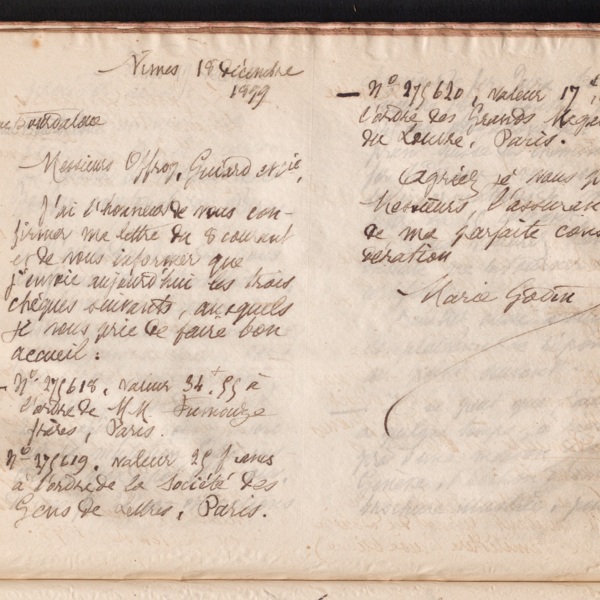 Nîmes 18 décembre
1899
Bourdaloue
Messieurs Offroy, Guiard et Cie,
J'ai l'honneur de vous con-
firmer ma lettre du 8 courant
et de vous informer que
j'envoie aujourd'hui les trois
chèques suivants, auxquels
je vous prie de faire bon
accueil :
- N° 275618, valeur 34f.55 à
l'ordre de MM Fumouze
frères, Paris.
N° 275619, valeur 25 francs
à l'ordre de la Société des
Gens de Lettres, Paris.
- N° 275620, valeur 17f
l'ordre des Grands Maga
du Louvre, Paris.
Agréez, je vous p
Messieurs, l'assuran
de ma parfaite cons
dération
Marie Godin